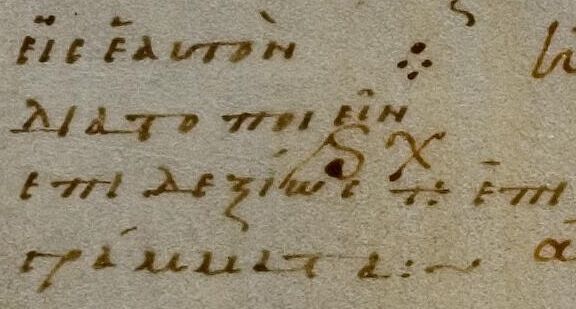 εἰς ἑαυτὸν
διὰ τὸ ποιεῖν
ἐπιδεξίως τ: ἐπι
γράμματα:~